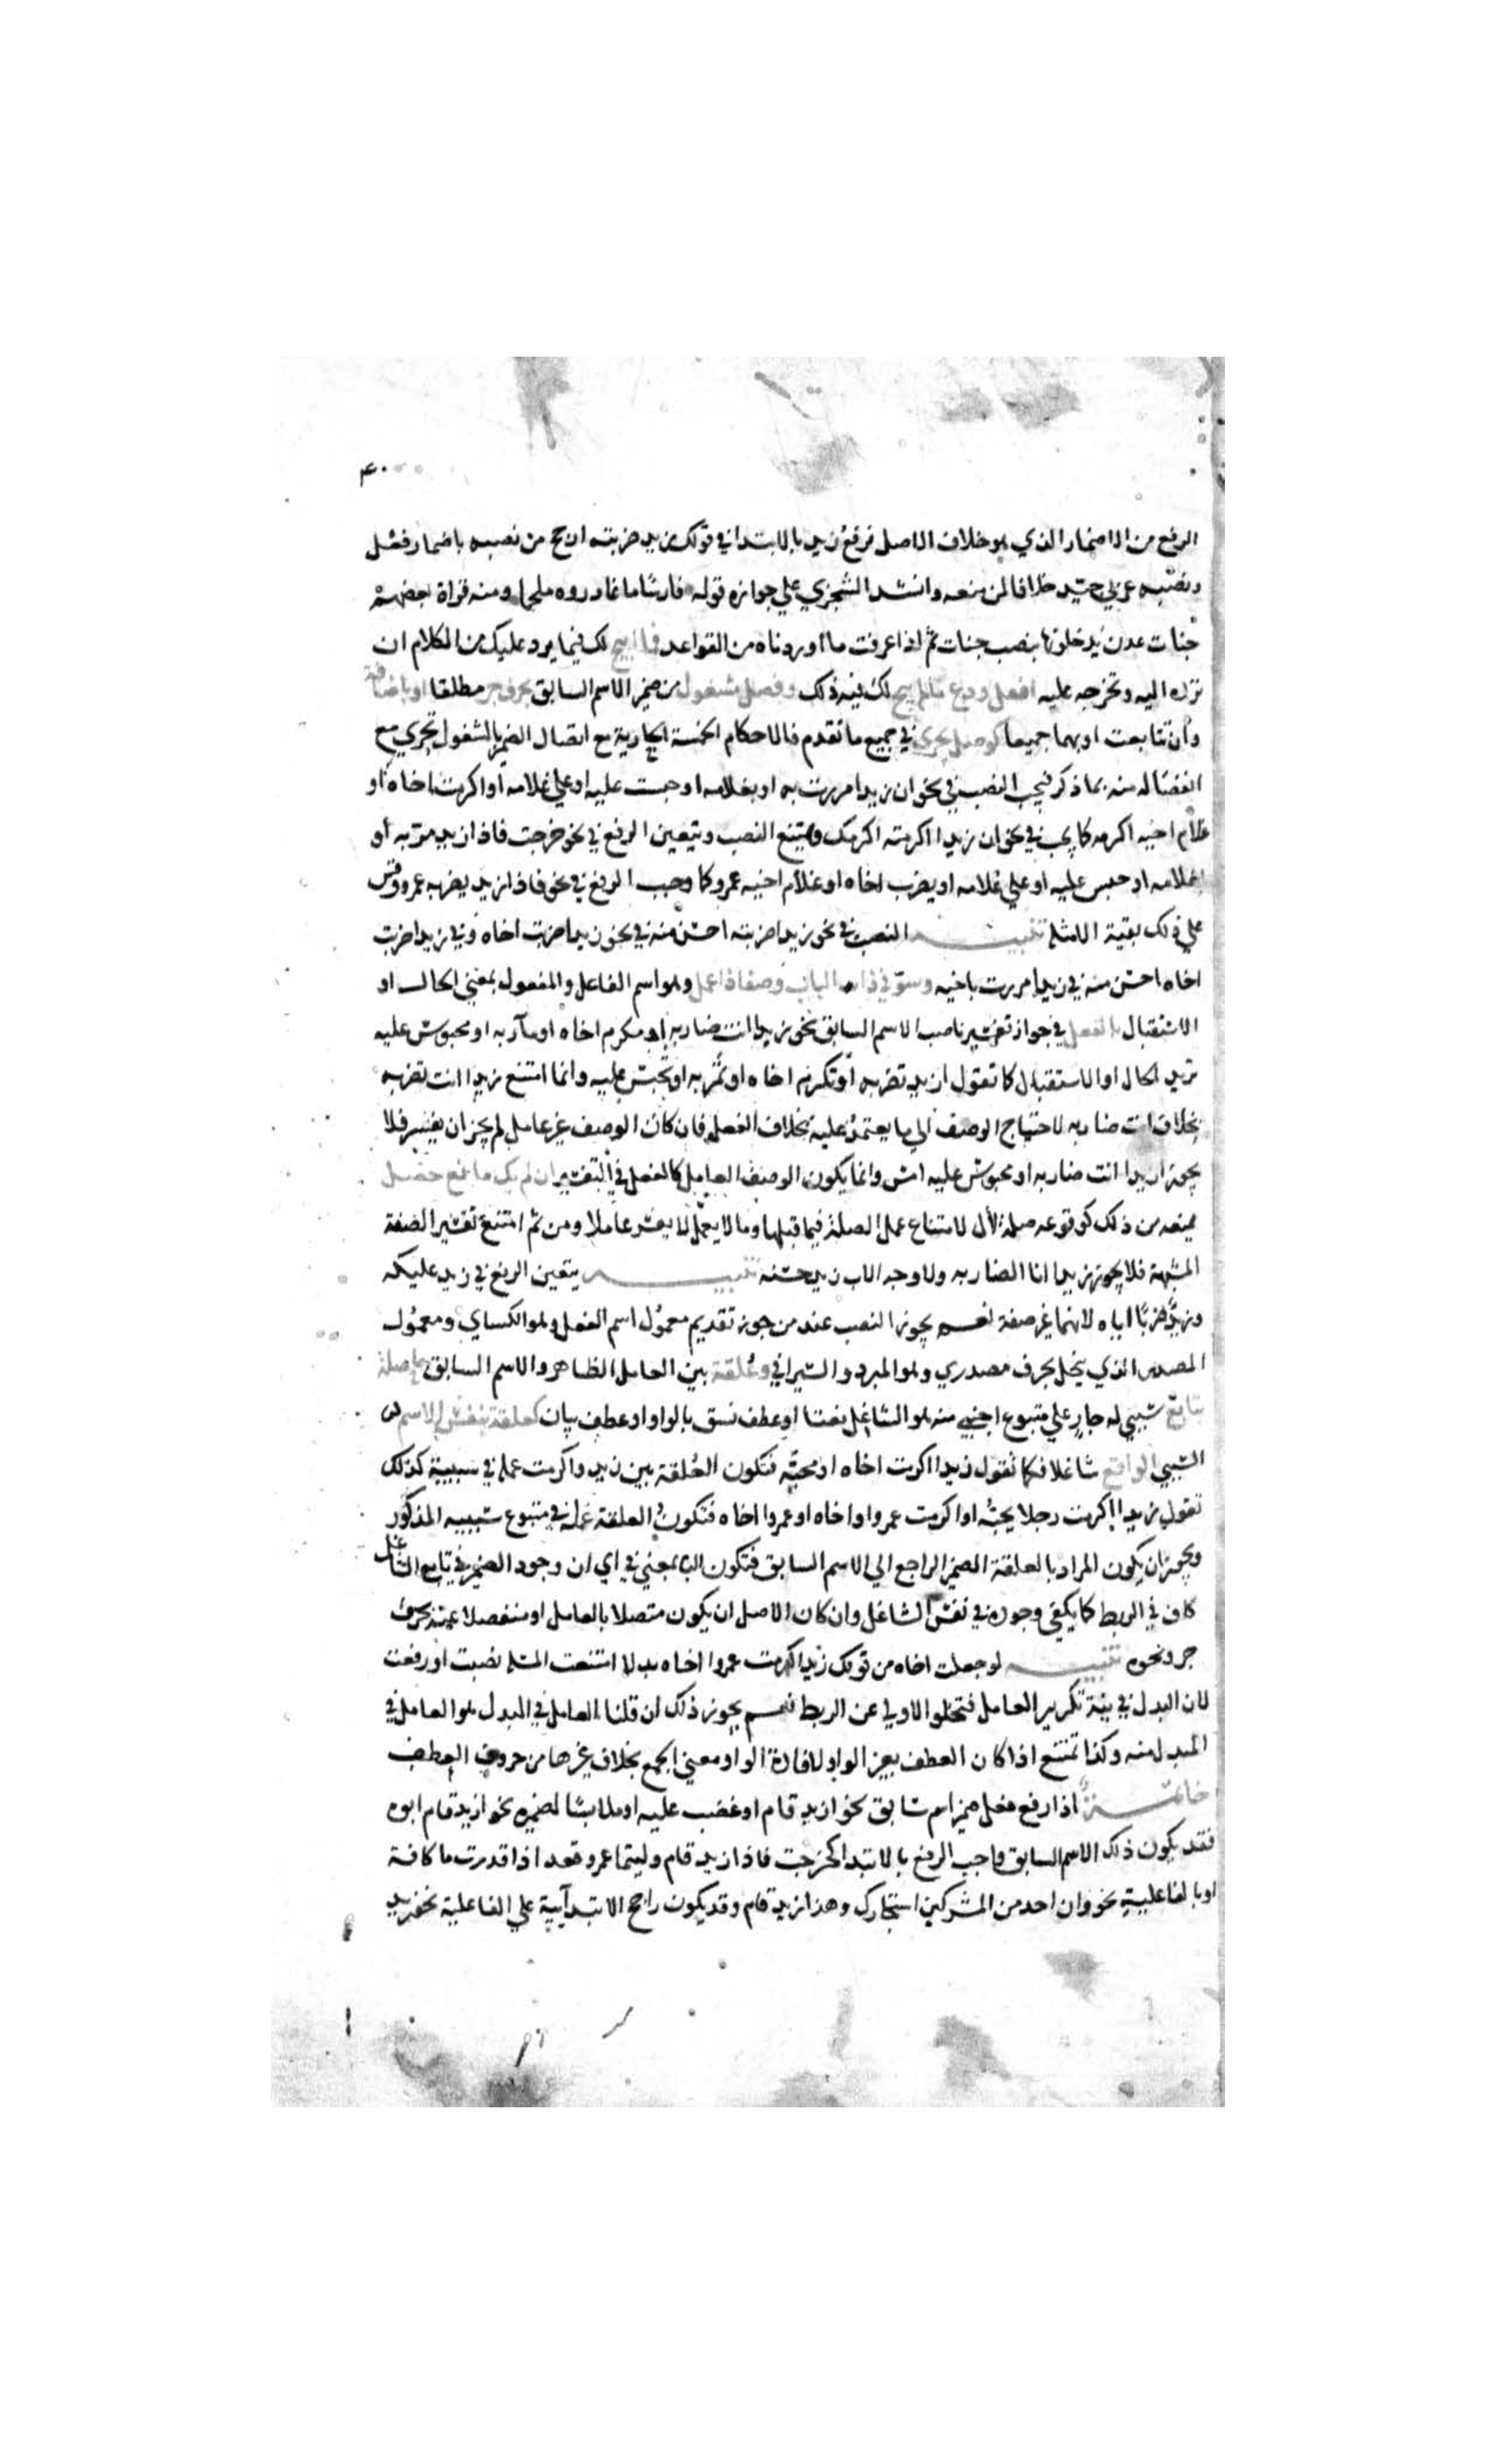 ٤٠
الرفع من الاضمار الذي هو خلاف الاصل فرفع زيد بالابتدا في قولك زيد ضربته ارجح من نصبه باضمار فعل
ونصبه عربي جيد خلافا لمن منعه وانشد الشجري علي جوازه قوله فارسا ما غادروه ملحما ومنه قراة بعضهم
جنات عدن يدخلونها بنصب جنات ثم اذا عرفت ما اوردناه من القواعد فما ابيح لك فيما يرد عليك من الكلام ان
ترده اليه وتخرجه عليه افعل ودع ما لم يبح لك فيه ذلك وفصل مشغول من ضمير الاسم السابق بحرف جر مطلقا او باضافة
وان تتابعت او بهما جميعا كوصل يجري في جميع ما تقدم فالاحكام الخمسة الجارية مع اتصال الضمير بالمشغول تجري مع
انفصاله منه بما ذكر فيجب النصب في نحو ان زيدا مررت به او بغلامه او حبست عليه او علي غلامه او اكرمت اخاه او
غلام اخيه اكرمه كما يجب في نحو ان زيدا اكرمته اكرمك ويمتنع النصب ويتعين الرفع في نحو خرجت فاذا زيد مر به او
بغلامه او حبس عليه او علي غلامه او يضرب اخاه او غلام اخيه عمرو كما وجب الرفع في نحو فاذا زيد يضربه عمرو وقس
علي ذلك بقية الامثلة تنبيه النصب في نحو زيدا ضربته احسن منه في نحو زيدا ضربت اخاه وفي زيدا ضربت
اخاه احسن منه في زيدا مررت باخيه وسو في ذا الباب وصفا ذا عمل وهو اسم الفاعل والمفعول بمعني الحال او
الاستقبال بالفعل في جواز تفسير ناصب الاسم السابق نحو زيدا انت ضاربه او مكرم اخاه او مار به او محبوس عليه
تريد الحال او الاستقبال كما تقول ازيد تضربه او تكرم اخاه او تمر به او تحبس عليه وانما امتنع زيدا انت تضربه
بخلاف انت ضاربه لاحتياج الوصف الي ما يعتمد عليه بخلاف الفعل فان كان الوصف غير عامل لم يجز ان يفسر فلا
يجوز ازيدا انت ضاربه او محبوس عليه امس وانما يكون الوصف العامل كالفعل في التفسير ان لم يك مانع حصل
يمنعه من ذلك كوقوعه صلة لال لامتناع عمل الصلة فيما قبلها وما لا يعمل لا يفسر عاملا ومن ثم امتنع تفسير الصفة
المشبهة فلا يجوز زيدا انا الضاربه ولا وجه الاب زيد حسنه تنبيه يتعين الرفع في زيد عليكه
وزيد ضربا اياه لانهما غير صفة نعم يجوز النصب عند من جوز تقديم معمول اسم الفعل وهو الكساي ومعمول
المصدر الذي ينحل بحرف مصدري وهو المبرد والسيرافي وعلقة بين العامل الظاهر والاسم السابق حاصلة
بتابع سببي له جار علي متبوع اجنبي منه هو الشاغل نعتا او عطف نسق بالواو او عطف بيان كعلقة بنفس الاسم
السببي الواقع شاغلا فكما تقول زيدا اكرمت اخاه او محبه فتكون العلقة بين زيد واكرمت عمله في سببيه كذلك
تقول زيدا اكرمت رجلا يحبه او اكرمت عمروا واخاه او عمروا اخاه فتكون العلقة عمله في متبوع سببيه المذكور
ويجوز ان يكون المراد بالعلقة الضمير الراجع الي الاسم السابق فتكون البا بمعني في اي ان وجود الضمير في تابع الشاغل
كاف في الربط كما يكفي وجوده في نفس الشاغل وان كان الاصل ان يكون متصلا بالعامل او منفصلا عنه بحرف
جر ونحوه تنبيه لو جعلت اخاه من قولك زيدا اكرمت عمروا اخاه بدلا امتنعت المسئلة نصبت او رفعت
لان البدل في نية تكرير العامل فتخلو الاولي عن الربط نعم يجوز ذلك ان قلنا العامل في البدل هو العامل في
المبدل منه وكذا تمتنع اذا كان العطف بغير الواو لافادة الواو معني الجمع بخلاف غيرها من حروف العطف
خاتمة اذا رفع فعل ضمير اسم سابق نحو ازيد قام او غضب عليه او ملابسا لضميره نحو ازيد قام ابوه
فقد يكون ذلك الاسم السابق واجب الرفع بالابتدا كخرجت فاذا زيد قام وليتما عمرو قعد اذا قدرت ما كافة
او بالفاعلية نحو وان احد من المشركين استجارك وهذا زيد قام وقد يكون راجح الابتدآية علي الفاعلية نحو زيد